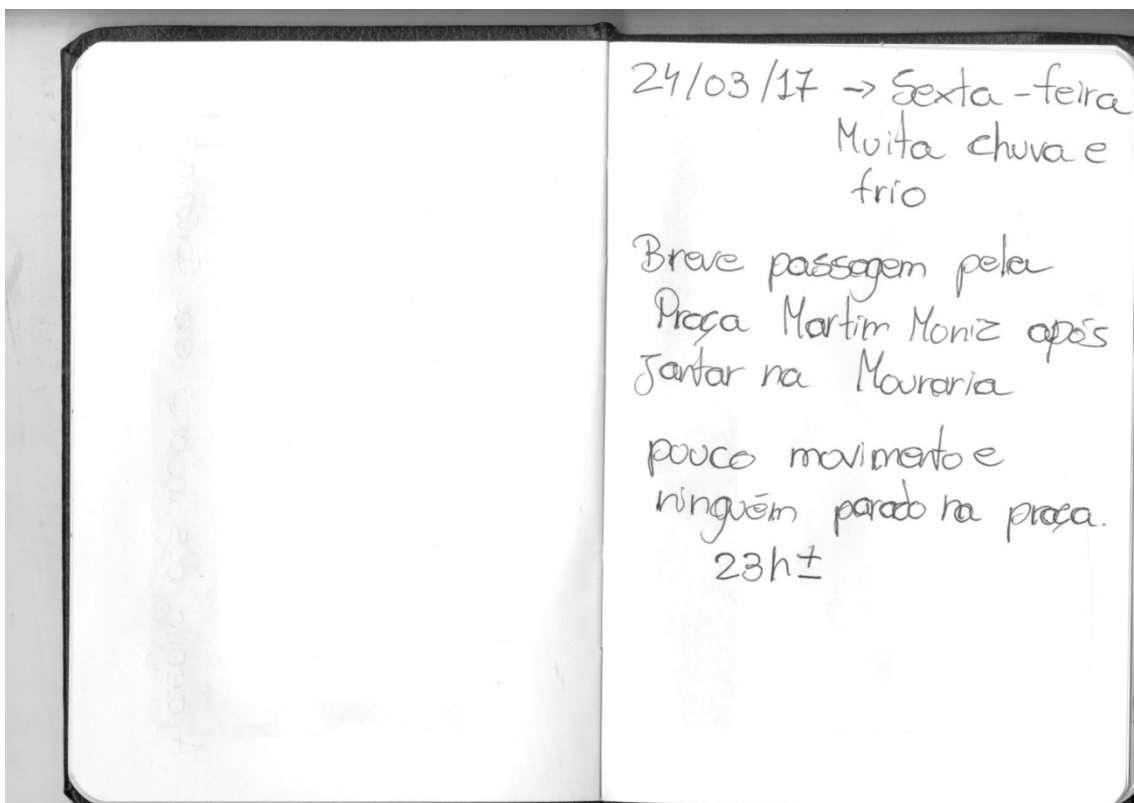 24/03/17 → Sexta-feira
Muita chuva e
frio
Breve passagem pela
Praça Martim Moniz após
Jantar na Mouraria
pouco movimento e
ninguém parado na praça.
23h±